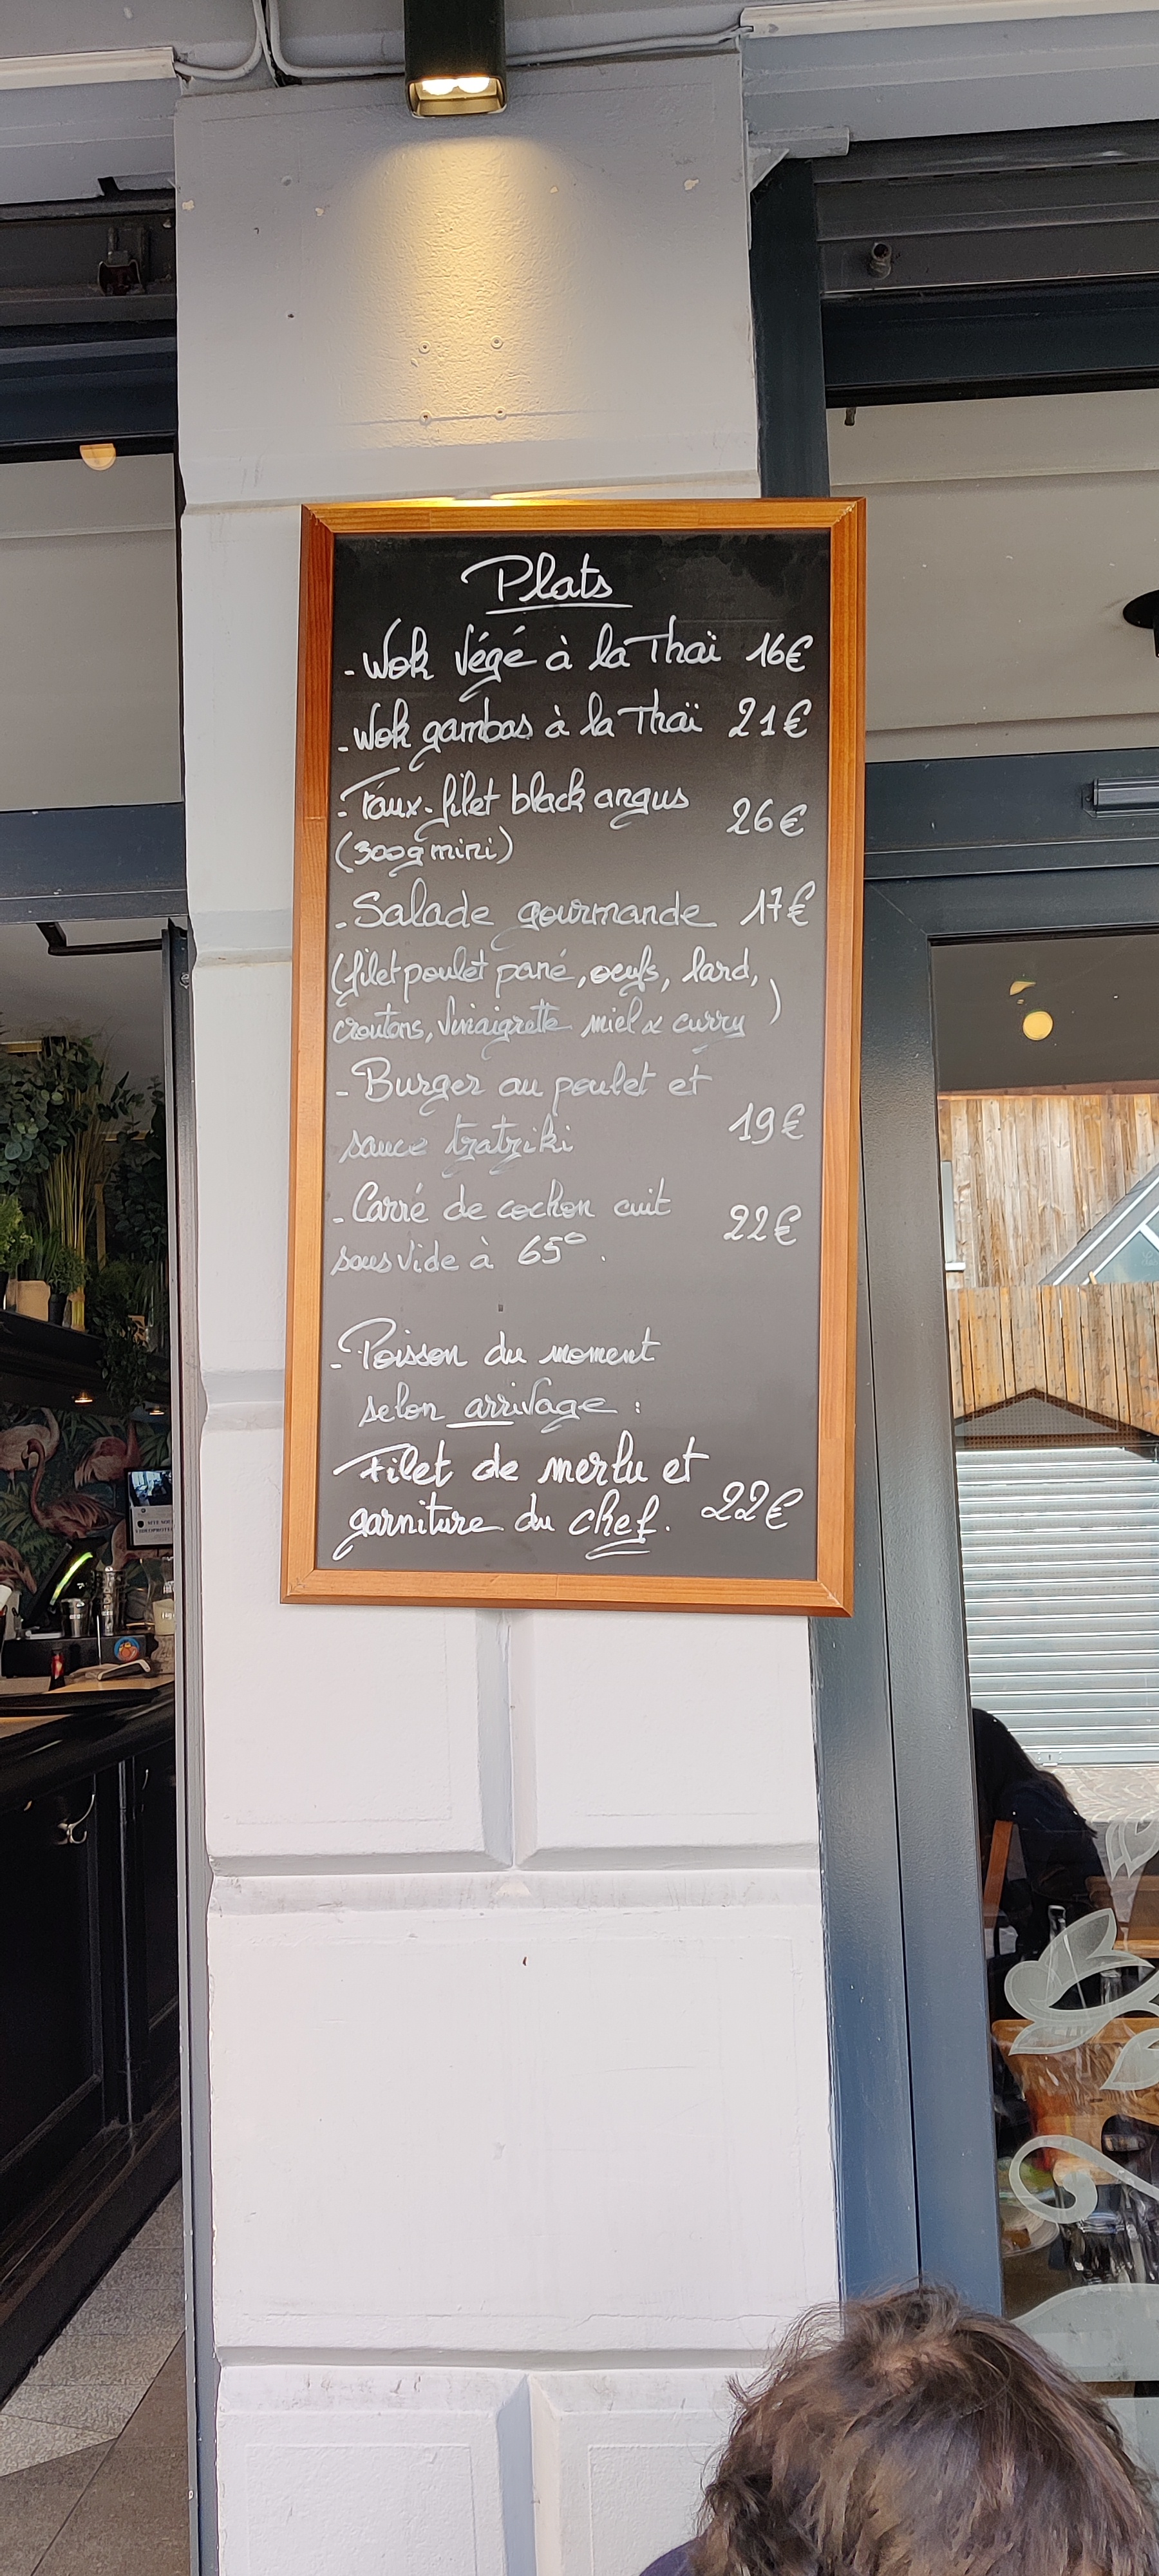 Plats
- Wok Végé à la Thaï 16€
- Wok gambas à la Thaï 21€
- Faux-filet black angus 26€
(300g mini)
- Salade gourmande 17€
(filet poulet pané, oeufs, lard,
croutons, Vinaigrette miel & curry)
- Burger au poulet et
sauce tzatziki 19€
- Carré de cochon cuit 22€
sous vide à 65°.
- Poisson du moment
selon arrivage :
Filet de merlu et
garniture du chef. 22€